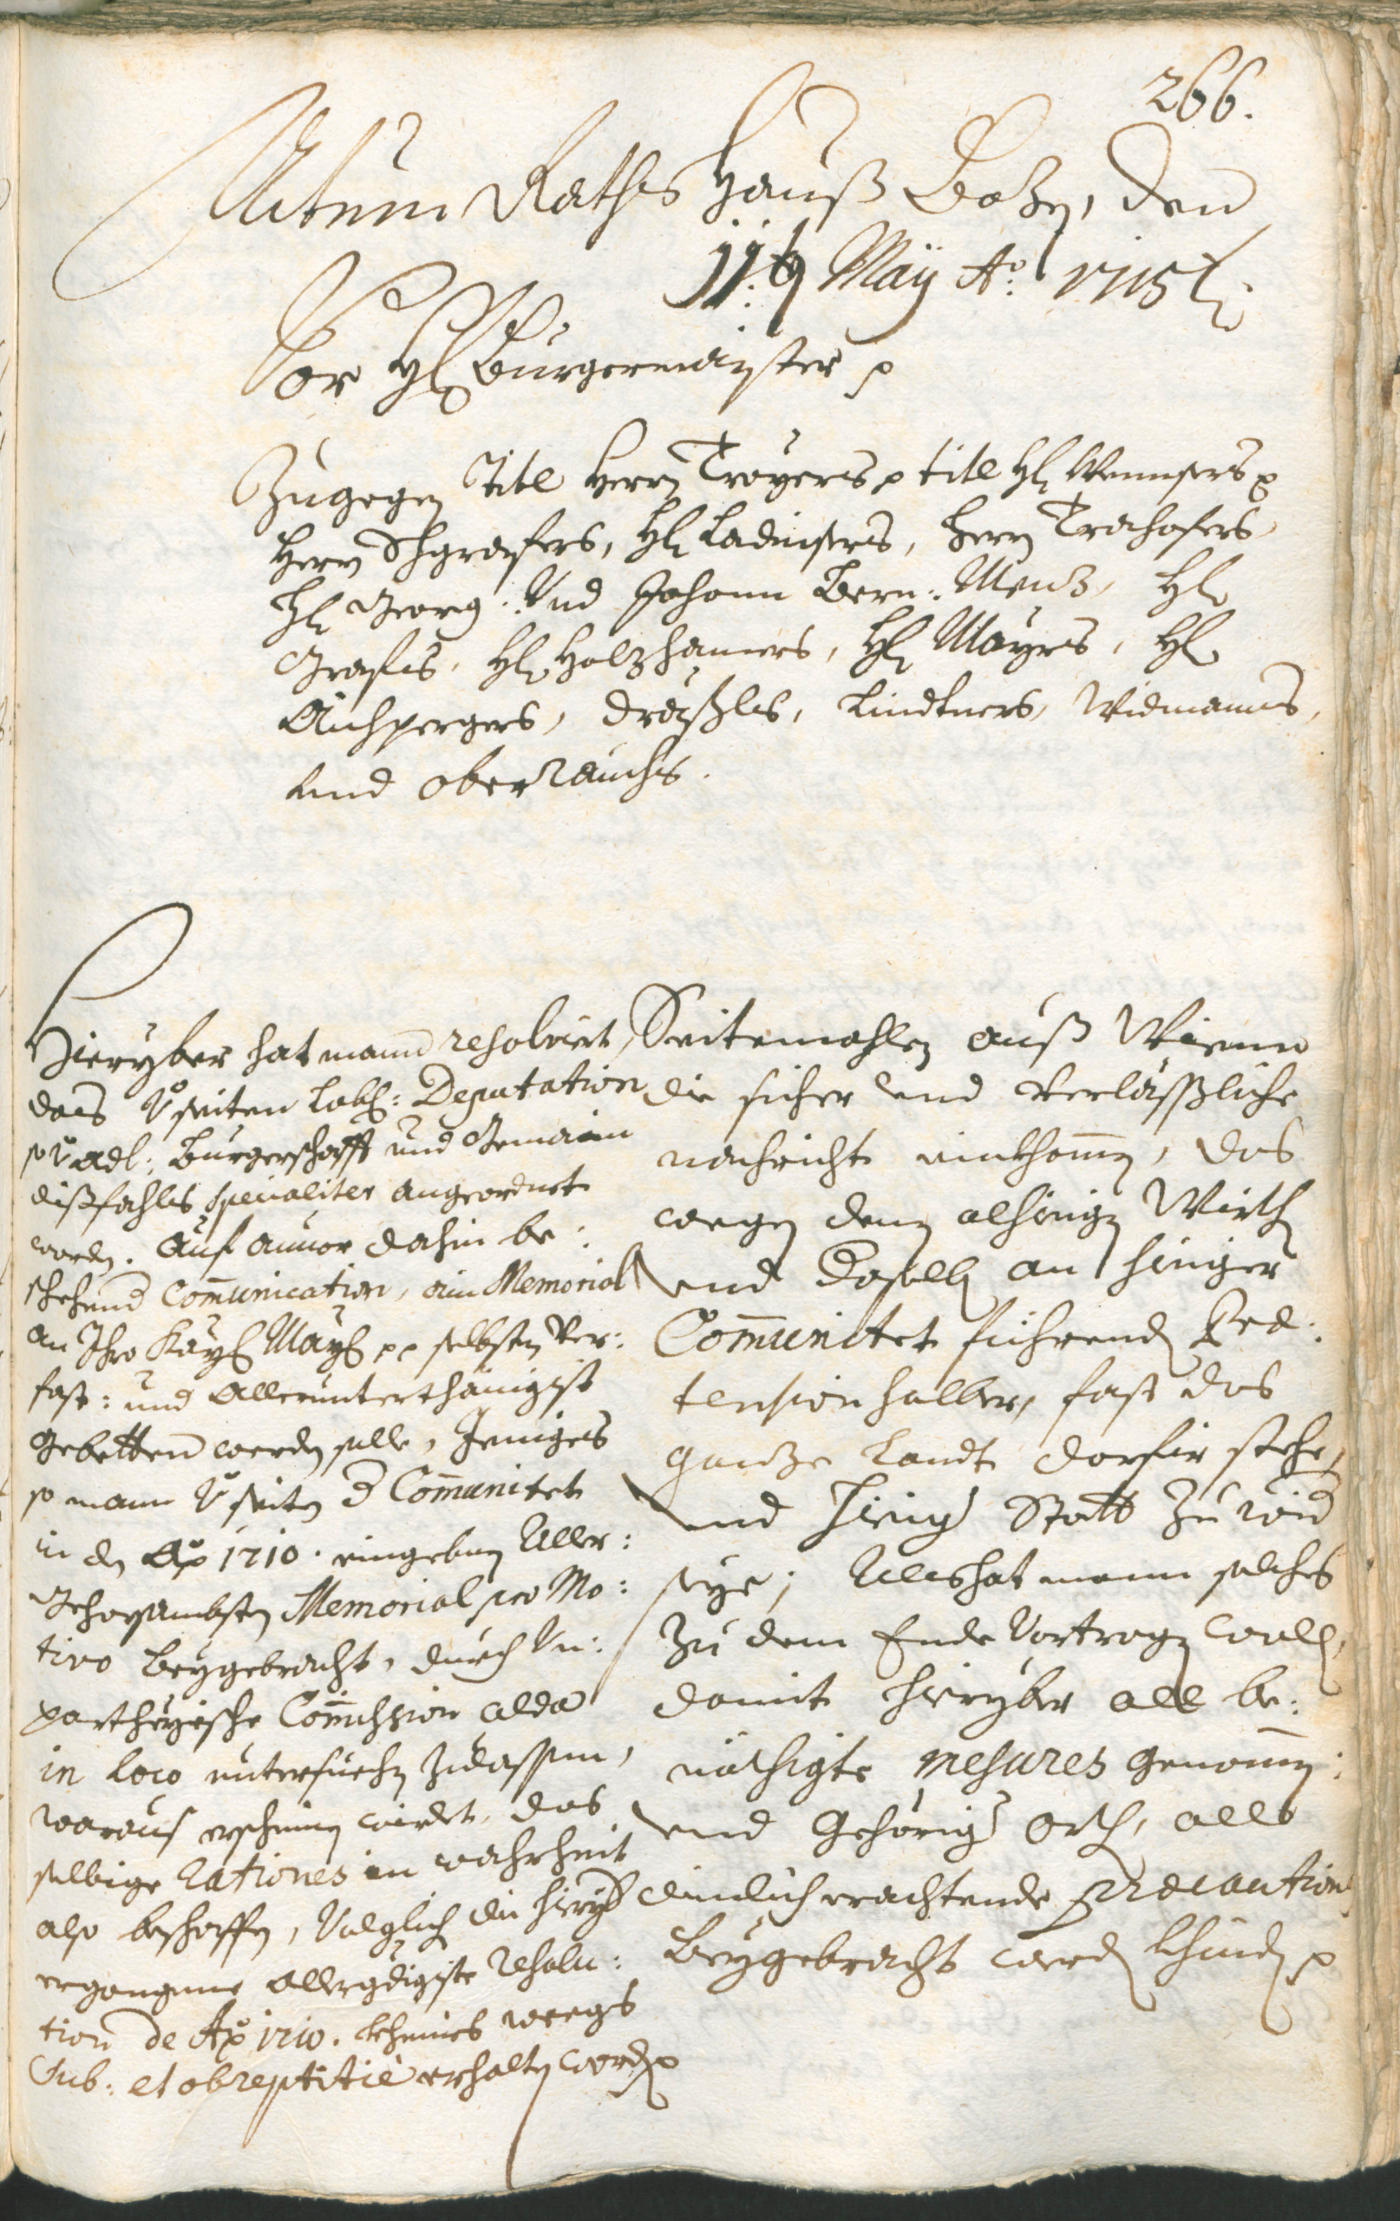 266.
Actum Rathshauß Bozen, den
May Aõ: 1715
Vor H: Burgermaister p
Zugegen Titl Herrn Troyers p titl H: Wennsers p
Herrn Schgraffers, H: Ladinsers, Herrn Trochofers
H: Georg: Und Johann Bern: Menz, H:
Grafls, H: Holzhamers, H: Mayrs, H:
Aichpergers, Lindtners, Widmanns,
und Oberrauchs.
Hieryber hat mann resolviert,
das V seiten Lobl: Deputation
so V Adl: Burgerschafft und Gemain
dißfahls specialiter angeordnet
worden. Auf anvor dahin be:
schehend Communication, ain Memorial
an Ihro Kayl Mayl pp selbsten ver:
fast: und Allerunterthänigist
gebetten werden solle, Jeniges
so mann V seiten d Communitet
in de Aõ 1710. eingeben Aller:
gehorsambsten Memorial pro Mo:
tivo beygebracht, durch Un:
partheyische Commission alda
in loco untersuechen zulassen,
woraus erscheinen wirdet, das
selbige rationes in wahrheit
also beschaffen, Volglich die hieryb
ergangene Allergdigiste resolu:
tion de Aõ 1710. kheines weegs
Sub: et obreptitiè erhalten worden p
Seitemahlen auß Wienn
die sicher und verläßliche
nachricht einkhomen, das
wegen denen alhieigen Wirth
und daselbs an hieiger
Communitet füehrenden Prae:
tension halber, fast das
ganze Landt darfir stehe,
und hieiger Statt zuwid
seye; Alls hat mann solches
zu dem Ende Vortragen wollen,
damit hieryber all be:
nöthigte mesures genomen:
und gehörig orth, alls
dienlich erachtende praecaution
beygebracht werden khinden p